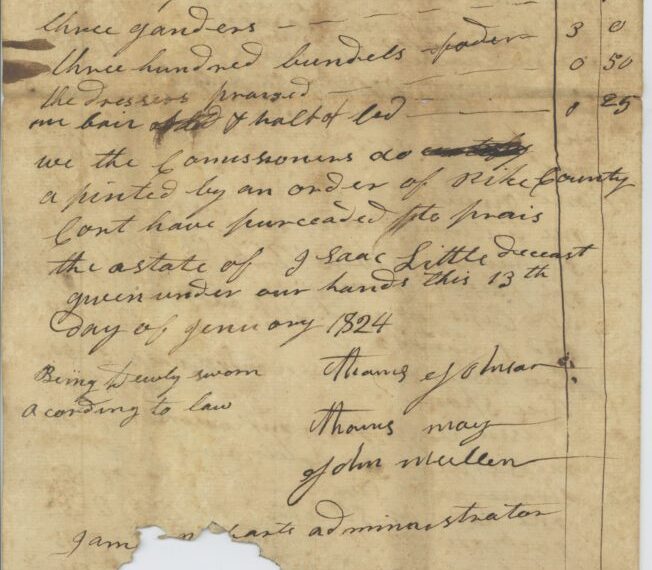 three ganders — — — — 3 0
three hundred bundels foder 0 50
the dressers praized 0 25
one bair & halt of led
we the Comissoners do
a pinted by an order of Pike County
Cort have purceaded to prais
the astate of Isaac Little deceast
given under our hands this 13 th
Day of Jenuory 1824
Being Dewly sworn
acording to law
Thoms Johnson
Thoms may
John Mullen
Jam administrator